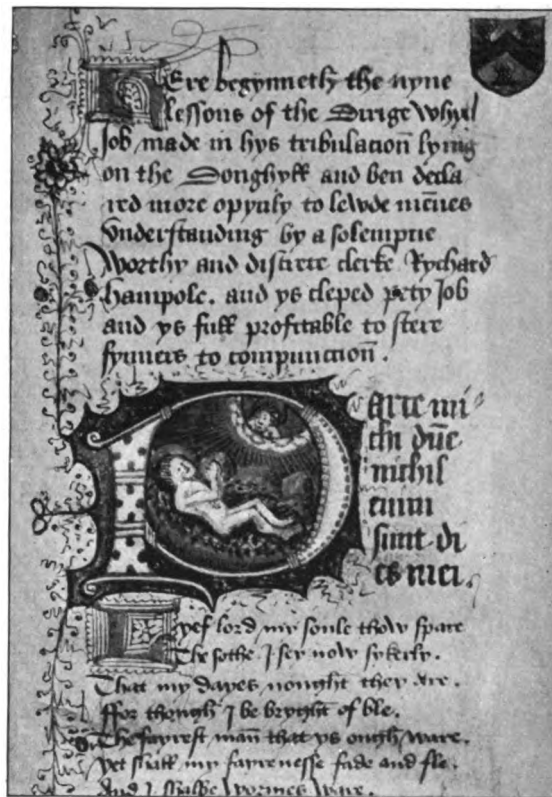 Here begynneth the nyne
lessons of the Dirige whych
Job made in hys tribulacion lying
on the Donghyll and ben decla
red more opynly to lewde mennes
vnderstanding by a solempne
worthy and discrete clerke Rychard
hampole. and ys cleped pety Job
and ys full profitable to stere
synners to compunction.
Parce mi
chi domine
nichil
enim
sunt di
es mei.
Lyef lord my soule thow spare
The sothe I sey now sykerly.
That my dayes nought they are.
ffor though I be bryght of ble.
The fayrest man that ys ough ware.
yet shall my fayrenesse fade and fle.
And I shalbe wormes ware.